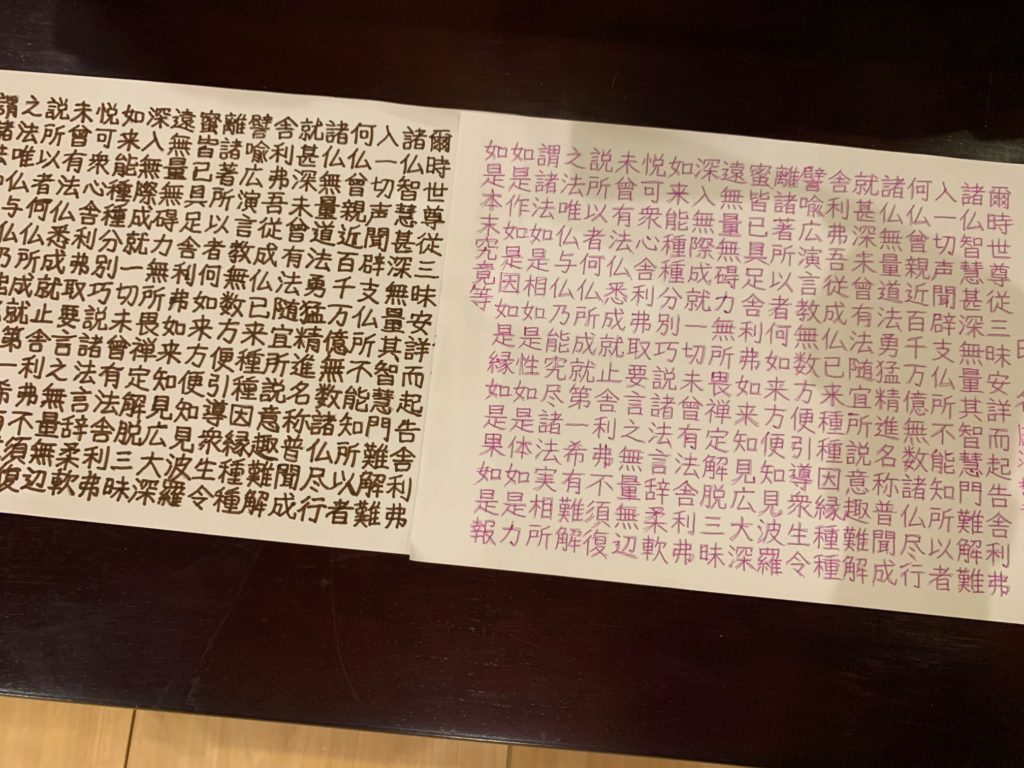 爾時世尊從三昧安詳而起告舎利弗
諸仏智慧甚深無量其智慧門難解難
入一切声聞辟支仏所不能知所以者
何仏曾親近百千万億無数諸仏尽行
諸仏無量道法勇猛精進名称普聞成
就甚深未曾有法随宜所説意趣難解
舎利弗吾従成仏已来種種因縁種種
譬喩広演言教無数方便引導衆生令
離諸著所以者何如来方便知見波羅
蜜皆已具足舎利弗如来知見広大深
遠無量無礙力無所畏禅定解脱三昧
深入無際成就一切未曾有法舎利弗
如来能種種分別巧説諸法言辞柔軟
悦可衆心舎利弗取要言之無量無辺
未曾有法仏悉成就止舎利弗不須復
説所以者何仏所成就第一希有難解
之法唯仏与仏乃能究尽諸法実相所
謂諸法如是相如是性如是体如是力
如是作如是因如是縁如是果如是報
如是本末究竟等
爾時世尊從三昧安詳而起告舎利弗
諸仏智慧甚深無量其智慧門難解難
入一切声聞辟支仏所不能知所以者
何仏曾親近百千万億無数諸仏尽行
諸仏無量道法勇猛精進名称普聞成
就甚深未曾有法随宜所説意趣難解
舎利弗吾従成仏已来種種因縁種種
譬喩広演言教無数方便引導衆生令
離諸著所以者何如来方便知見波羅
蜜皆已具足舎利弗如来知見広大深
遠無量無礙力無所畏禅定解脱三昧
深入無際成就一切未曾有法舎利弗
如来能種種分別巧説諸法言辞柔軟
悦可衆心舎利弗取要言之無量無辺
未曾有法仏悉成就止舎利弗不須復
説所以者何仏所成就第一希有
之法唯仏与仏乃
謂諸